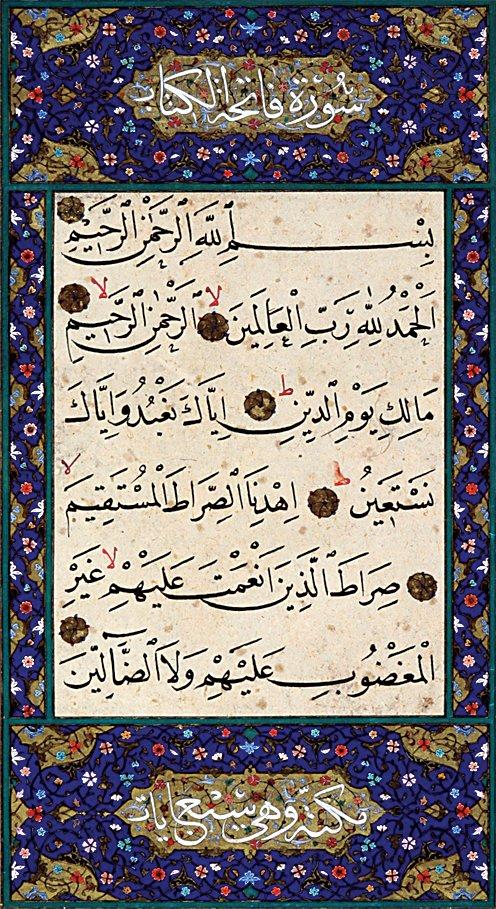 سُورَةُ فَاتِحَةِ الْكِتَابِ
بِسْمِ اللَّهِ الرَّحْمٰنِ الرَّحِيمِ
اَلْحَمْدُ لِلّٰهِ رَبِّ الْعَالَمِينَ لا اَلرَّحْمٰنِ الرَّحِيمِ لا
مَالِكِ يَوْمِ الدِّينِ ط اِيَّاكَ نَعْبُدُ وَاِيَّاكَ
نَسْتَعِينُ ط اِهْدِنَا الصِّرَاطَ الْمُسْتَقِيمَ لا
صِرَاطَ الَّذِينَ اَنْعَمْتَ عَلَيْهِمْ لا غَيْرِ
الْمَغْضُوبِ عَلَيْهِمْ وَلَا الضَّٓالِّينَ
مكية وهي سبع ايات